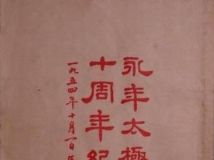 永年太極
十周年紀
一九五四年十月一日